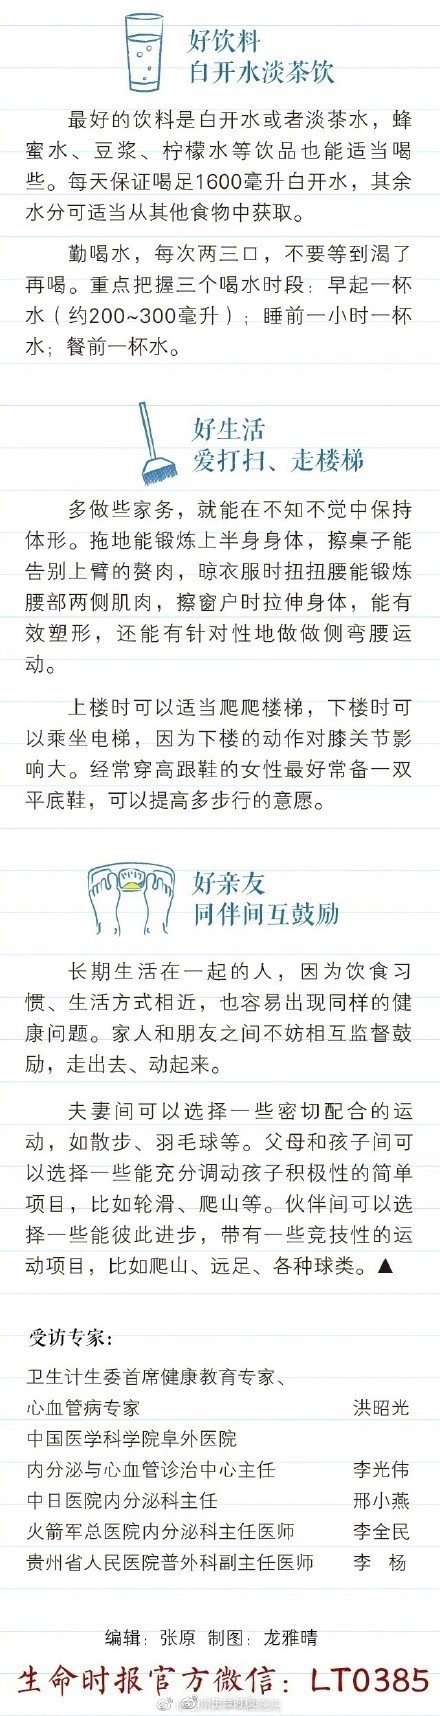 好饮料
白开水淡茶饮
最好的饮料是白开水或者淡茶水，蜂
蜜水、豆浆、柠檬水等饮品也能适当喝
些。每天保证喝足1600毫升白开水，其余
水分可适当从其他食物中获取。
勤喝水，每次两三口，不要等到渴了
再喝。重点把握三个喝水时段：早起一杯
水（约200~300毫升）；睡前一小时一杯
水；餐前一杯水。
好生活
爱打扫、走楼梯
多做些家务，就能在不知不觉中保持
体形。拖地能锻炼上半身身体，擦桌子能
告别上臂的赘肉，晾衣服时扭扭腰能锻炼
腰部两侧肌肉，擦窗户时拉伸身体，能有
效塑形，还能有针对性地做做侧弯腰运
动。
上楼时可以适当爬爬楼梯，下楼时可
以乘坐电梯，因为下楼的动作对膝关节影
响大。经常穿高跟鞋的女性最好常备一双
平底鞋，可以提高多步行的意愿。
好亲友
同伴间互鼓励
长期生活在一起的人，因为饮食习
惯、生活方式相近，也容易出现同样的健
康问题。家人和朋友之间不妨相互监督鼓
励，走出去、动起来。
夫妻间可以选择一些密切配合的运
动，如散步、羽毛球等。父母和孩子间可
以选择一些能充分调动孩子积极性的简单
项目，比如轮滑、爬山等。伙伴间可以选
择一些能彼此进步，带有一些竞技性的运
动项目，比如爬山、远足、各种球类。▲
受访专家：
卫生计生委首席健康教育专家、
心血管病专家 洪昭光
中国医学科学院阜外医院
内分泌与心血管诊治中心主任 李光伟
中日医院内分泌科主任 邢小燕
火箭军总医院内分泌科主任医师 李全民
贵州省人民医院普外科副主任医师 李 杨
编辑：张原 制图：龙雅晴
生命时报官方微信：LT0385